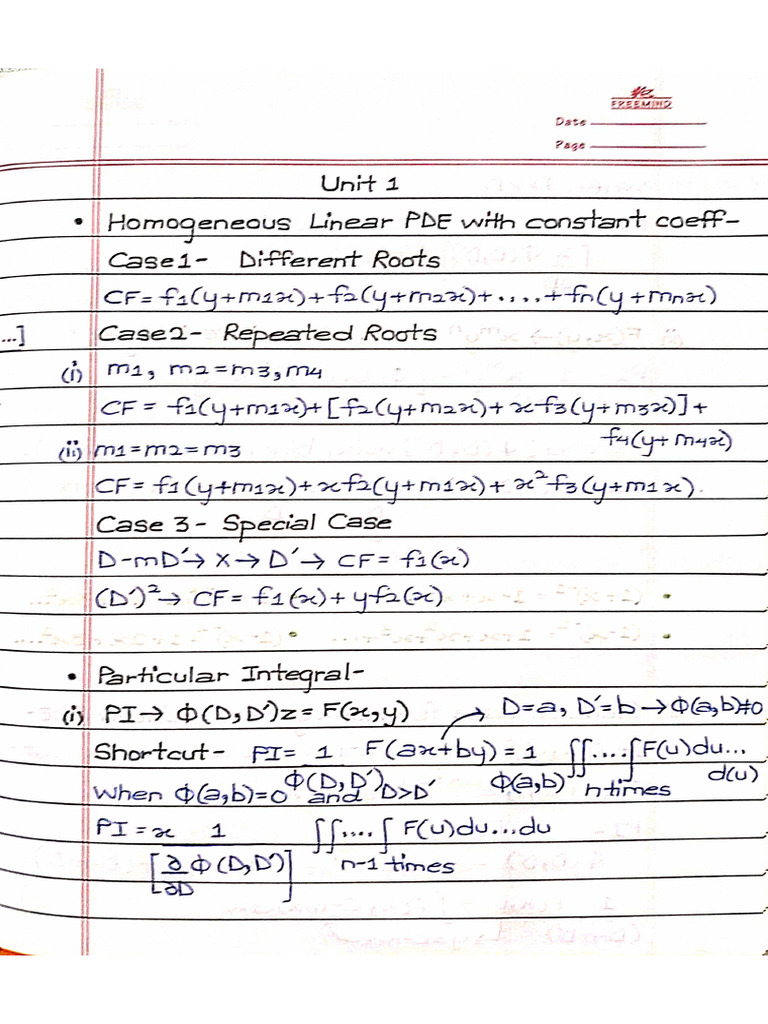 FREEMIND
Date
Page
Unit 1
• Homogeneous Linear PDE with constant coeff-
Case1- Different Roots
CF= f1(y+m1x)+f2(y+m2x)+....+fn(y+mnx)
...] Case2- Repeated Roots
(i) m1, m2=m3, m4
CF = f1(y+m1x)+[f2(y+m2x)+xf3(y+m3x)]+
f4(y+m4x)
(ii) m1=m2=m3
CF= f1(y+m1x)+xf2(y+m1x)+x²f3(y+m1x).
Case 3- Special Case
D-mD'→ X→ D' → CF= f1(x)
(D')²→ CF= f1(x)+yf2(x)
• Particular Integral-
(i) PI→ Φ(D,D')z=F(x,y) → D=a, D'=b →Φ(a,b)≠0
Shortcut- PI= 1 F(ax+by)=1 ∬....∫F(u)du...
Φ(D,D') Φ(a,b) n times d(u)
When Φ(a,b)=0 and D>D'
PI = x 1 ∬....∫ F(u)du...du
[∂ Φ(D,D')] n-1 times
∂D